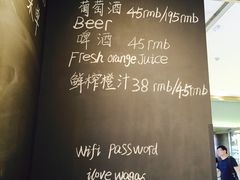 葡萄酒 45rmb/95rmb
Beer
啤酒 45rmb
Fresh orange Juice
鲜榨橙汁 38rmb/45rmb
Wifi password
ilovewagas